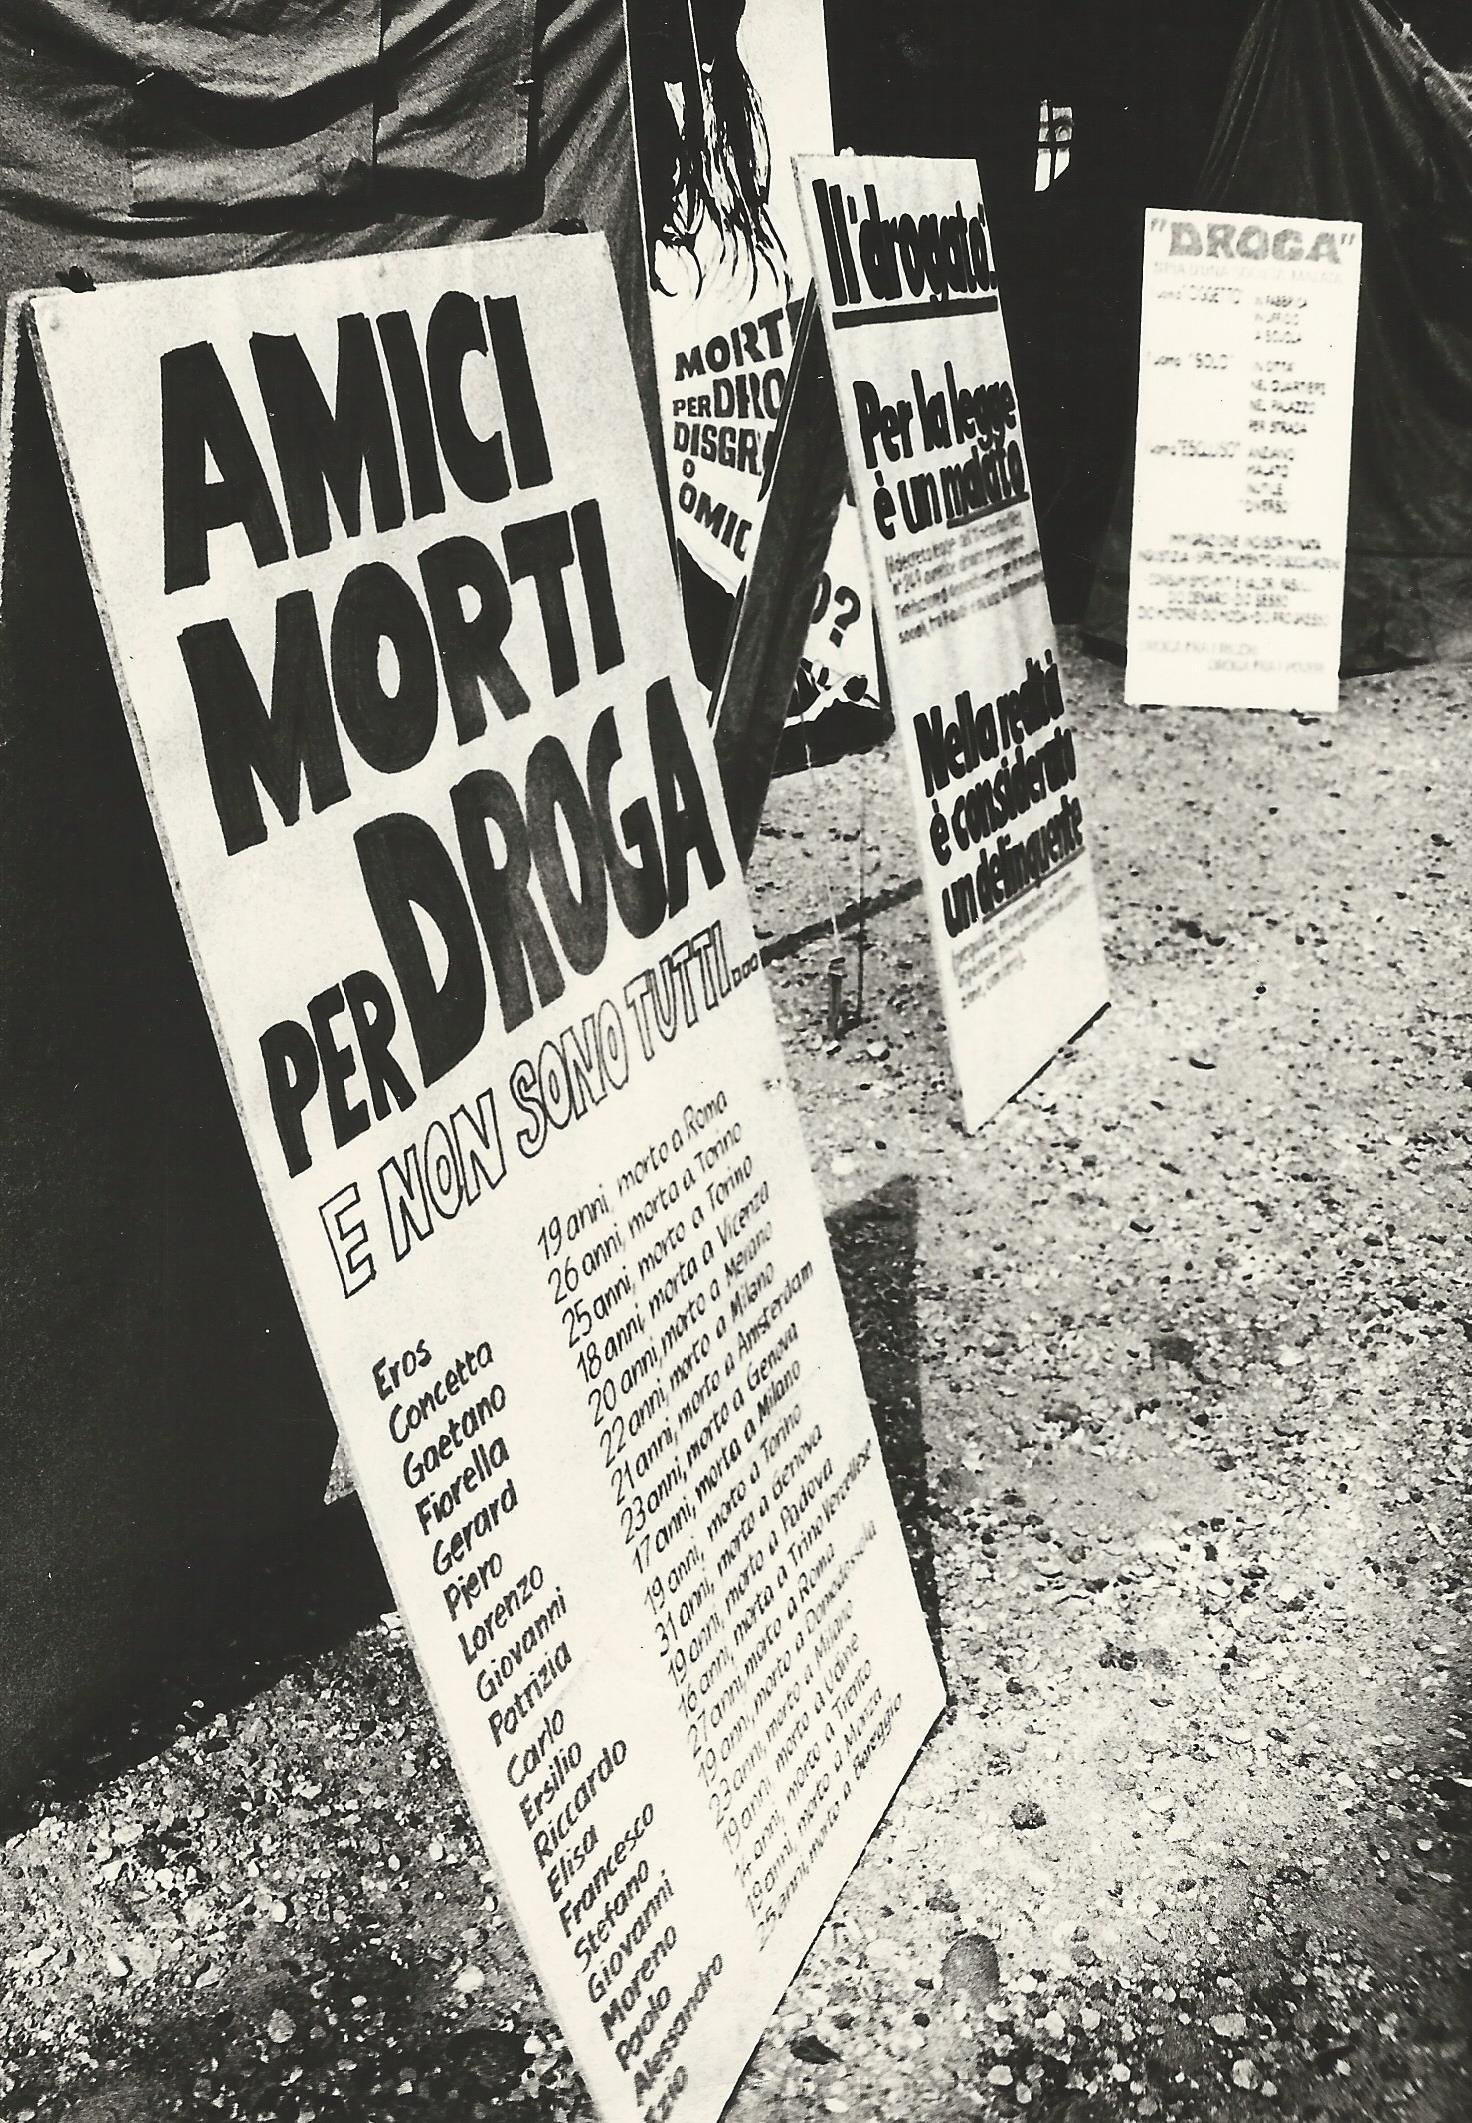 AMICI
MORTI
PER DROGA
E NON SONO TUTTI...
Eros 19 anni, morto a Roma
Concetta 26 anni, morta a Torino
Gaetano 25 anni, morto a Torino
Fiorella 18 anni, morta a Vicenza
Gerard 20 anni, morto a Merano
Piero 22 anni, morto a Milano
Lorenzo 21 anni, morto a Amsterdam
Giovanni 23 anni, morto a Genova
Patrizia 17 anni, morta a Milano
Carlo 19 anni, morto a Torino
Ersilio 31 anni, morto a Genova
Riccardo 19 anni, morto a Padova
Elisa 16 anni, morta a Trino Vercellese
Francesco 27 anni, morto a Roma
Stefano 19 anni, morto a Domodossola
Giovanni 23 anni, morto a Milano
Moreno 19 anni, morto a Udine
Paolo anni, morto a Trento
Alessandro 18 anni, morto a Monza
25 anni, morto a Viareggio
MORTI
PER DRO
DISGR
O
OMIC
O?
Il 'drogato'
Per la legge
è un malato
Nella realtà
è considerato
un delinquente
"DROGA"
uomo "OGGETTO" IN FABBRICA
IN UFFICIO
A SCUOLA
uomo "SOLO" IN CITTA'
NEL QUARTIERE
NEL PALAZZO
PER STRADA
uomo "ESCLUSO" ANZIANO
MALATO
INUTILE
"DIVERSO"